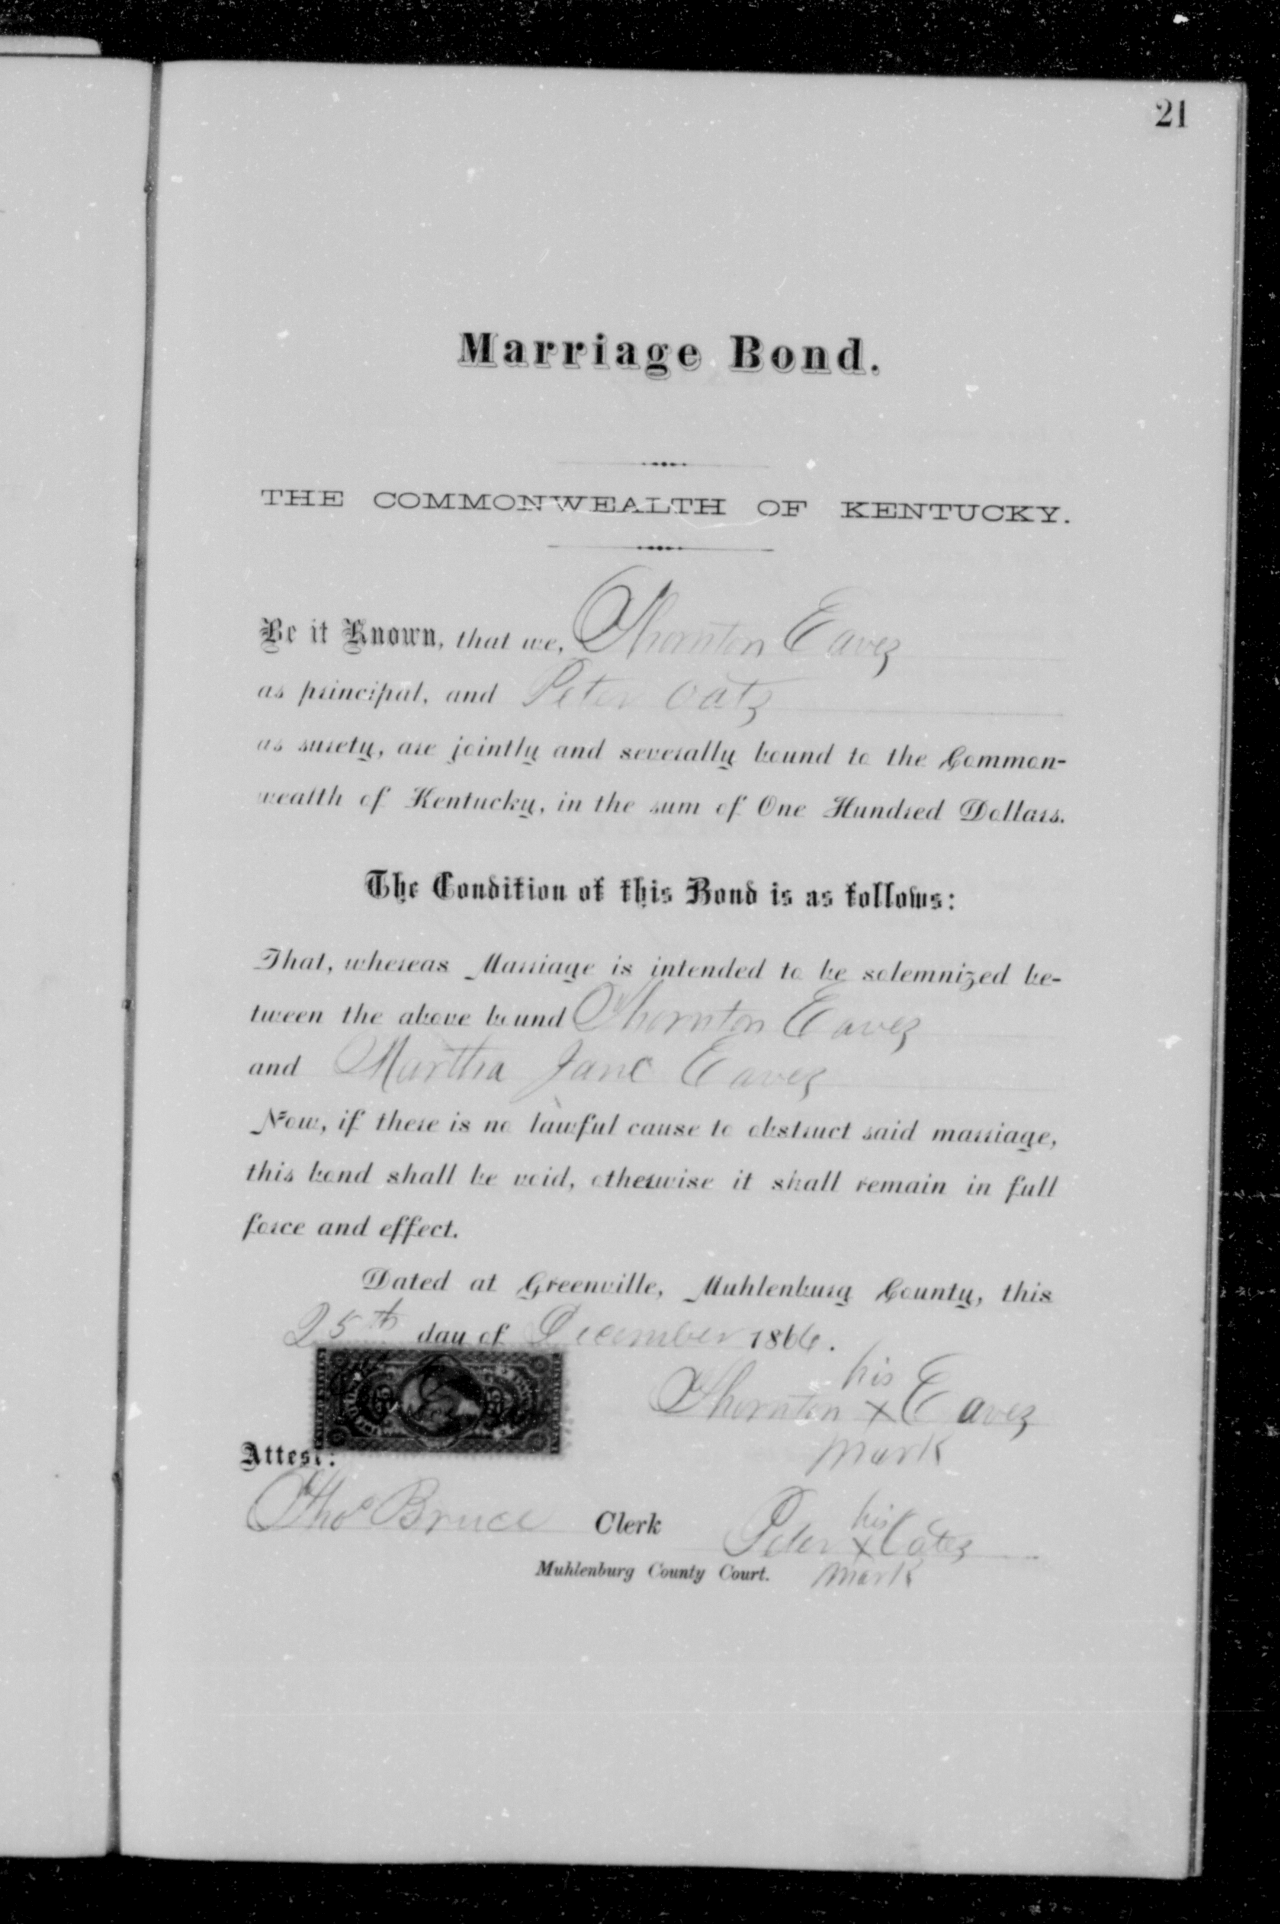 21
Marriage Bond.
THE COMMONWEALTH OF KENTUCKY.
Be it Known, that we, Thornton Eaves
as principal, and Peter Oats
as surety, are jointly and severally bound to the Common-
wealth of Kentucky, in the sum of One Hundred Dollars.
The Condition of this Bond is as follows:
That, whereas Marriage is intended to be solemnized be-
tween the above bound Thornton Eaves
and Martha Jane Eaves
Now, if there is no lawful cause to obstruct said marriage,
this bond shall be void, otherwise it shall remain in full
force and effect.
Dated at Greenville, Muhlenburg County, this
25th day of December 1866.
his
Thornton X Eaves
mark
Attest:
Tho Bruce Clerk
his
Peter X Oates
Muhlenburg County Court. mark